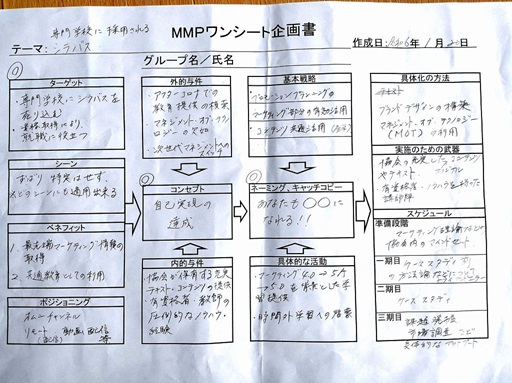 専門学校に採用される
MMPワンシート企画書
テーマ: シラバス
作成日: 令和6年1月20日
グループ名／氏名
ターゲット
専門学校にシラバスを
売り込む
資格取得により、
就職に役立つ
シーン
ずばり特定はせず、
どのシーンにも適用出来る
ベネフィット
1. 最先端マーケティング情報の
取得
2. 共通教育としての利用
ポジショニング
オムニチャンネル
リモート 動画配信
(配信) 等
外的与件
・アフターコロナでの
教育提供の模索
マネジメント・オブ・テクノ
ロジーの欠如
・次世代マネジメントへの
コンセプト
自己実現の
達成
内的与件
・協会が保有する充実
テキスト・コンテンツの提供
・有資格者・教師の
圧倒的なノウハウ・
経験
基本戦略
・プロモーションプランニングの
マーケティング部分の有効活用
・コンテンツ
ネーミング、キャッチコピー
あなたも〇〇に
なれる!!
具体的な活動
・マーケティング4.0→5.0
を背景とした学
習提供
・時間外学習への
具体化の方法
ブランドデザインの構築
マネジメント・オブ・テクノロジー
(MOT)の利用
実施のための武器
協会の充実したコンテンツ
やテキスト
有資格者・ノウハウを持った
講師陣
スケジュール
準備段階
マーケティング
協会内のマインドセット
一期目
ケーススタディで
の方法論など
二期目
ケーススタディ
三期目
課題発掘
市場調査など
具体的な